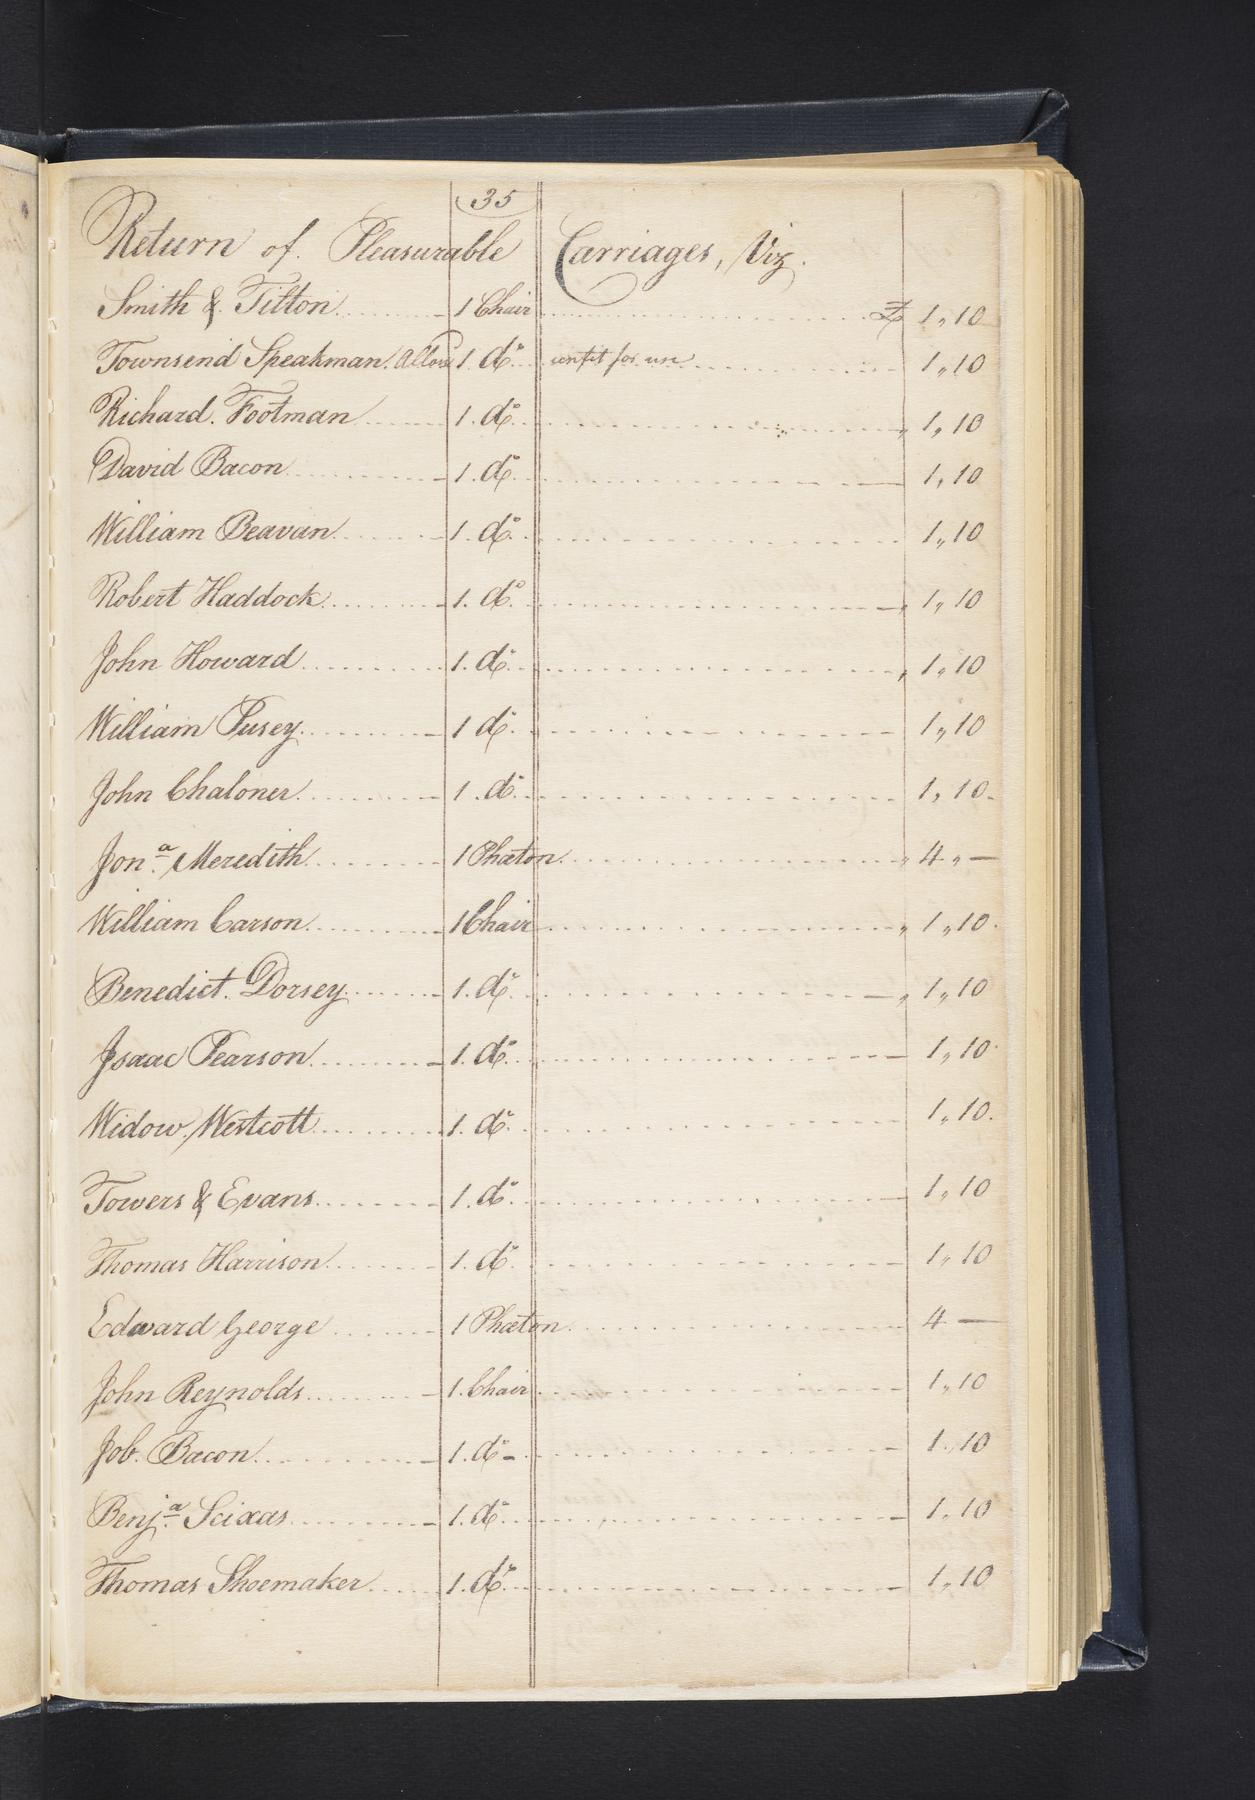 35
Return of Pleasurable Carriages, Viz.
Smith & Tilton 1 Chair £ 1,,10
Townsend Speakman. Allow 1. do unfit for use 1,,10
Richard. Footman 1. do 1,,10
David Bacon 1. do 1,,10
William Beavan 1. do 1,,10
Robert Haddock 1. do 1,,10
John Howard 1. do 1,,10
William Pusey 1 do 1,,10
John Chaloner 1. do 1,,10
Jona. Meredith 1 Phæton 4,,—
William Carson 1 Chair 1,,10
Benedict. Dorsey 1. do 1,,10
Isaac Pearson 1. do 1,,10
Widow Westcott 1. do 1,,10
Towers & Evans 1. do 1,,10
Thomas Harrison 1. do 1,,10
Edward George 1 Phæton 4 —
John Reynolds 1. Chair 1,,10
Job. Bacon 1. do 1,,10
Benja. Seixas 1. do 1,,10
Thomas Shoemaker 1. do 1,,10